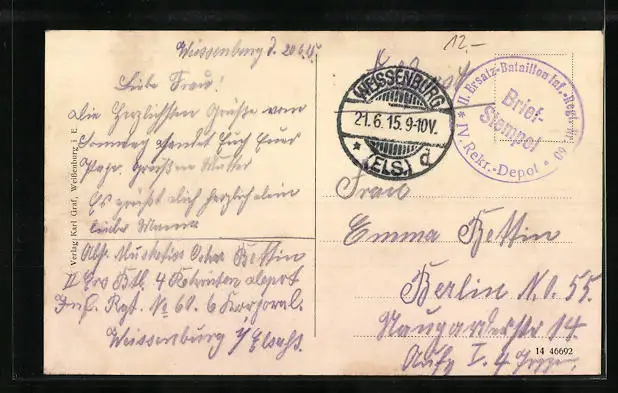 Weissenburg d. 20.6.15.
Liebe Frau!
Die herzlichsten Grüße vom
Sonntag sendet Euch Euer
Papa. Grüßen Mutter
Es grüßt Dich herzlich dein
lieber Mann
Abs. Musketier Oskar Bettin
II Ers Btl. 4 Rekruten depot
Inf. Rgt. No 60. 6 Korporal.
Weissenburg i/Elsaß.
Verlag Karl Graf, Weißenburg i. E.
12.-
WEISSENBURG
21.6.15.9-10V.
* (ELS.) d
II. Ersatz-Bataillon Inf.-Regt. Nr. 60
Brief-
Stempel
* IV. Rekr.-Depot *
Frau
Emma Bettin
Berlin N.O. 55.
Naugarderstr 14.
Aufg I. 4 Treppen
14 46692